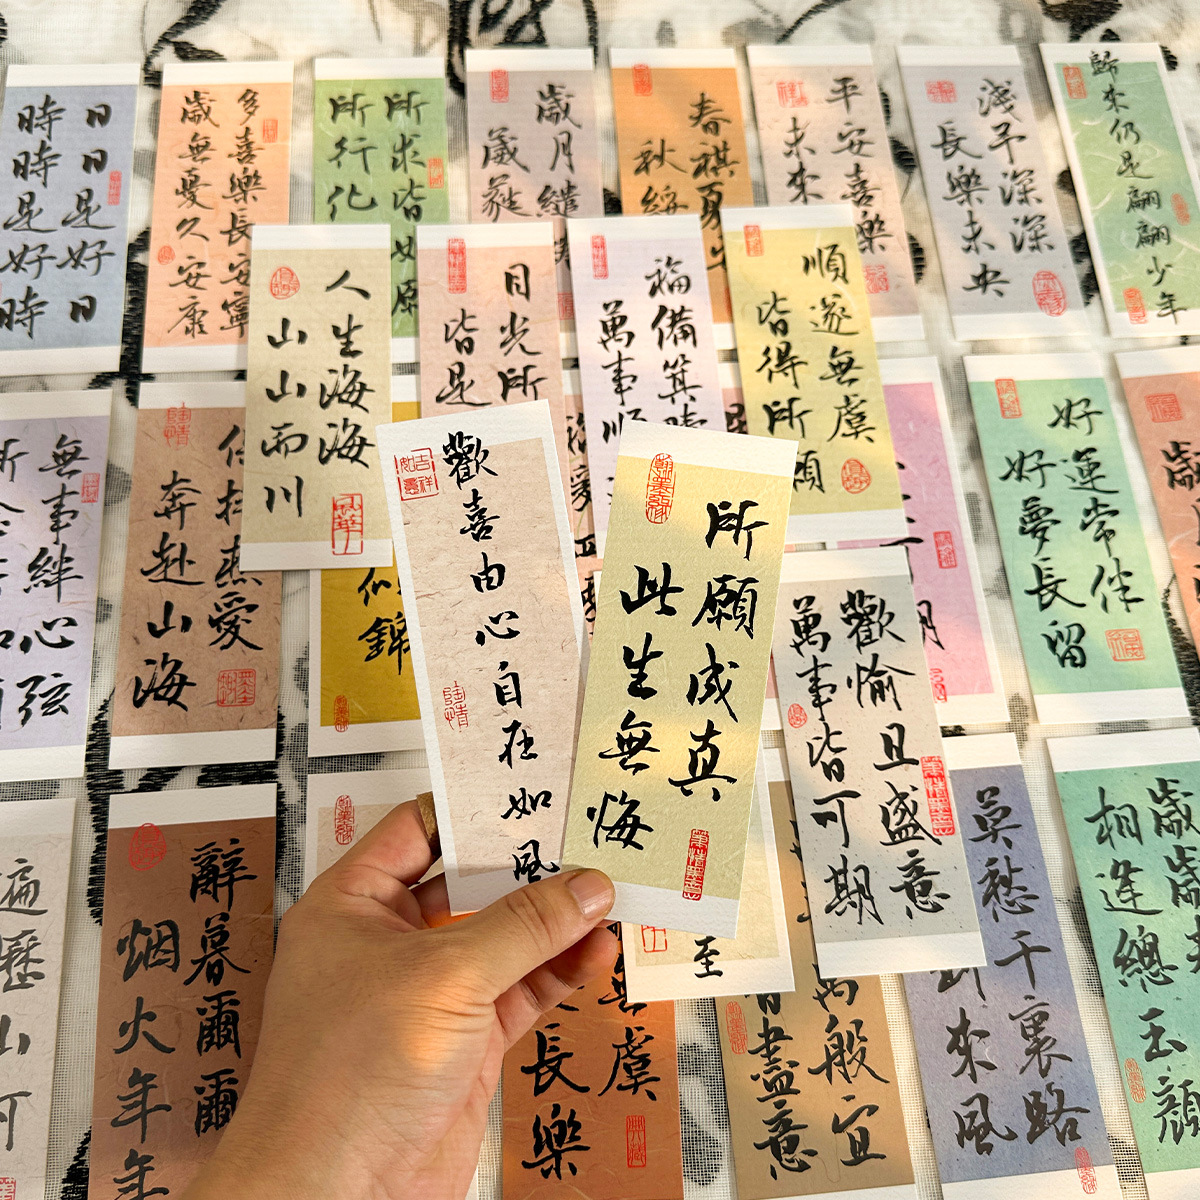 日日是好日
時時是好時
多喜樂長安寧
歲無憂久安康
所求皆如願
所行化
歲月繾
葳蕤
春祺夏
秋綏
平安喜樂
未來
淺予深深
長樂未央
歸來仍是翩翩少年
人生海海
山山而川
日光所
皆是
福備箕疇
萬事順
順遂無虞
皆得所願
無事絆心弦
愛
奔赴山海
似錦
歡喜由心自在如風
吉祥如意
陶情
所願成真
此生無悔
翰墨緣
歡愉且盛意
萬事皆可期
好運常伴
好夢長留
遍歷山河
辭暮爾爾
烟火年年
無虞
長樂
至
萬般宜
皆盡意
莫愁千裏路
來風
歲歲
相逢總玉顏